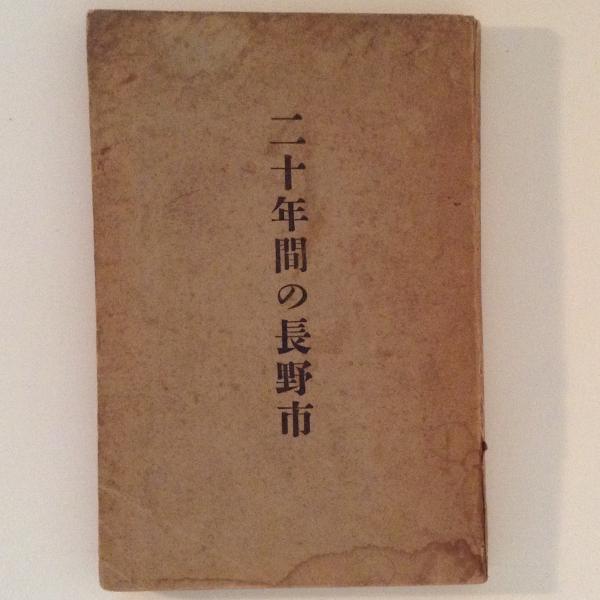 二十年間の長野市